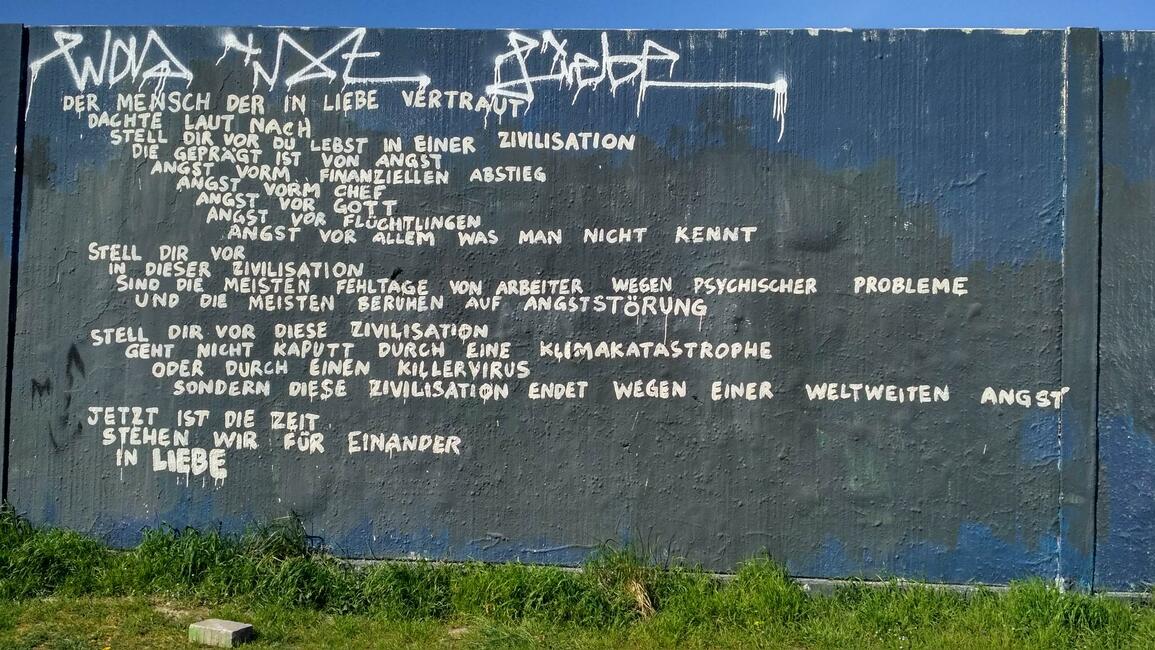 Liebe
DER MENSCH DER IN LIEBE VERTRAUT
DACHTE LAUT NACH
STELL DIR VOR DU LEBST IN EINER ZIVILISATION
DIE GEPRÄGT IST VON ANGST
ANGST VORM FINANZIELLEN ABSTIEG
ANGST VORM CHEF
ANGST VOR GOTT
ANGST VOR FLÜCHTLINGEN
ANGST VOR ALLEM WAS MAN NICHT KENNT
STELL DIR VOR
IN DIESER ZIVILISATION
SIND DIE MEISTEN FEHLTAGE VON ARBEITER WEGEN PSYCHISCHER PROBLEME
UND DIE MEISTEN BERUHEN AUF ANGSTSTÖRUNG
STELL DIR VOR DIESE ZIVILISATION
GEHT NICHT KAPUTT DURCH EINE KLIMAKATASTROPHE
ODER DURCH EINEN KILLERVIRUS
SONDERN DIESE ZIVILISATION ENDET WEGEN EINER WELTWEITEN ANGST
JETZT IST DIE ZEIT
STEHEN WIR FÜR EINANDER
IN LIEBE